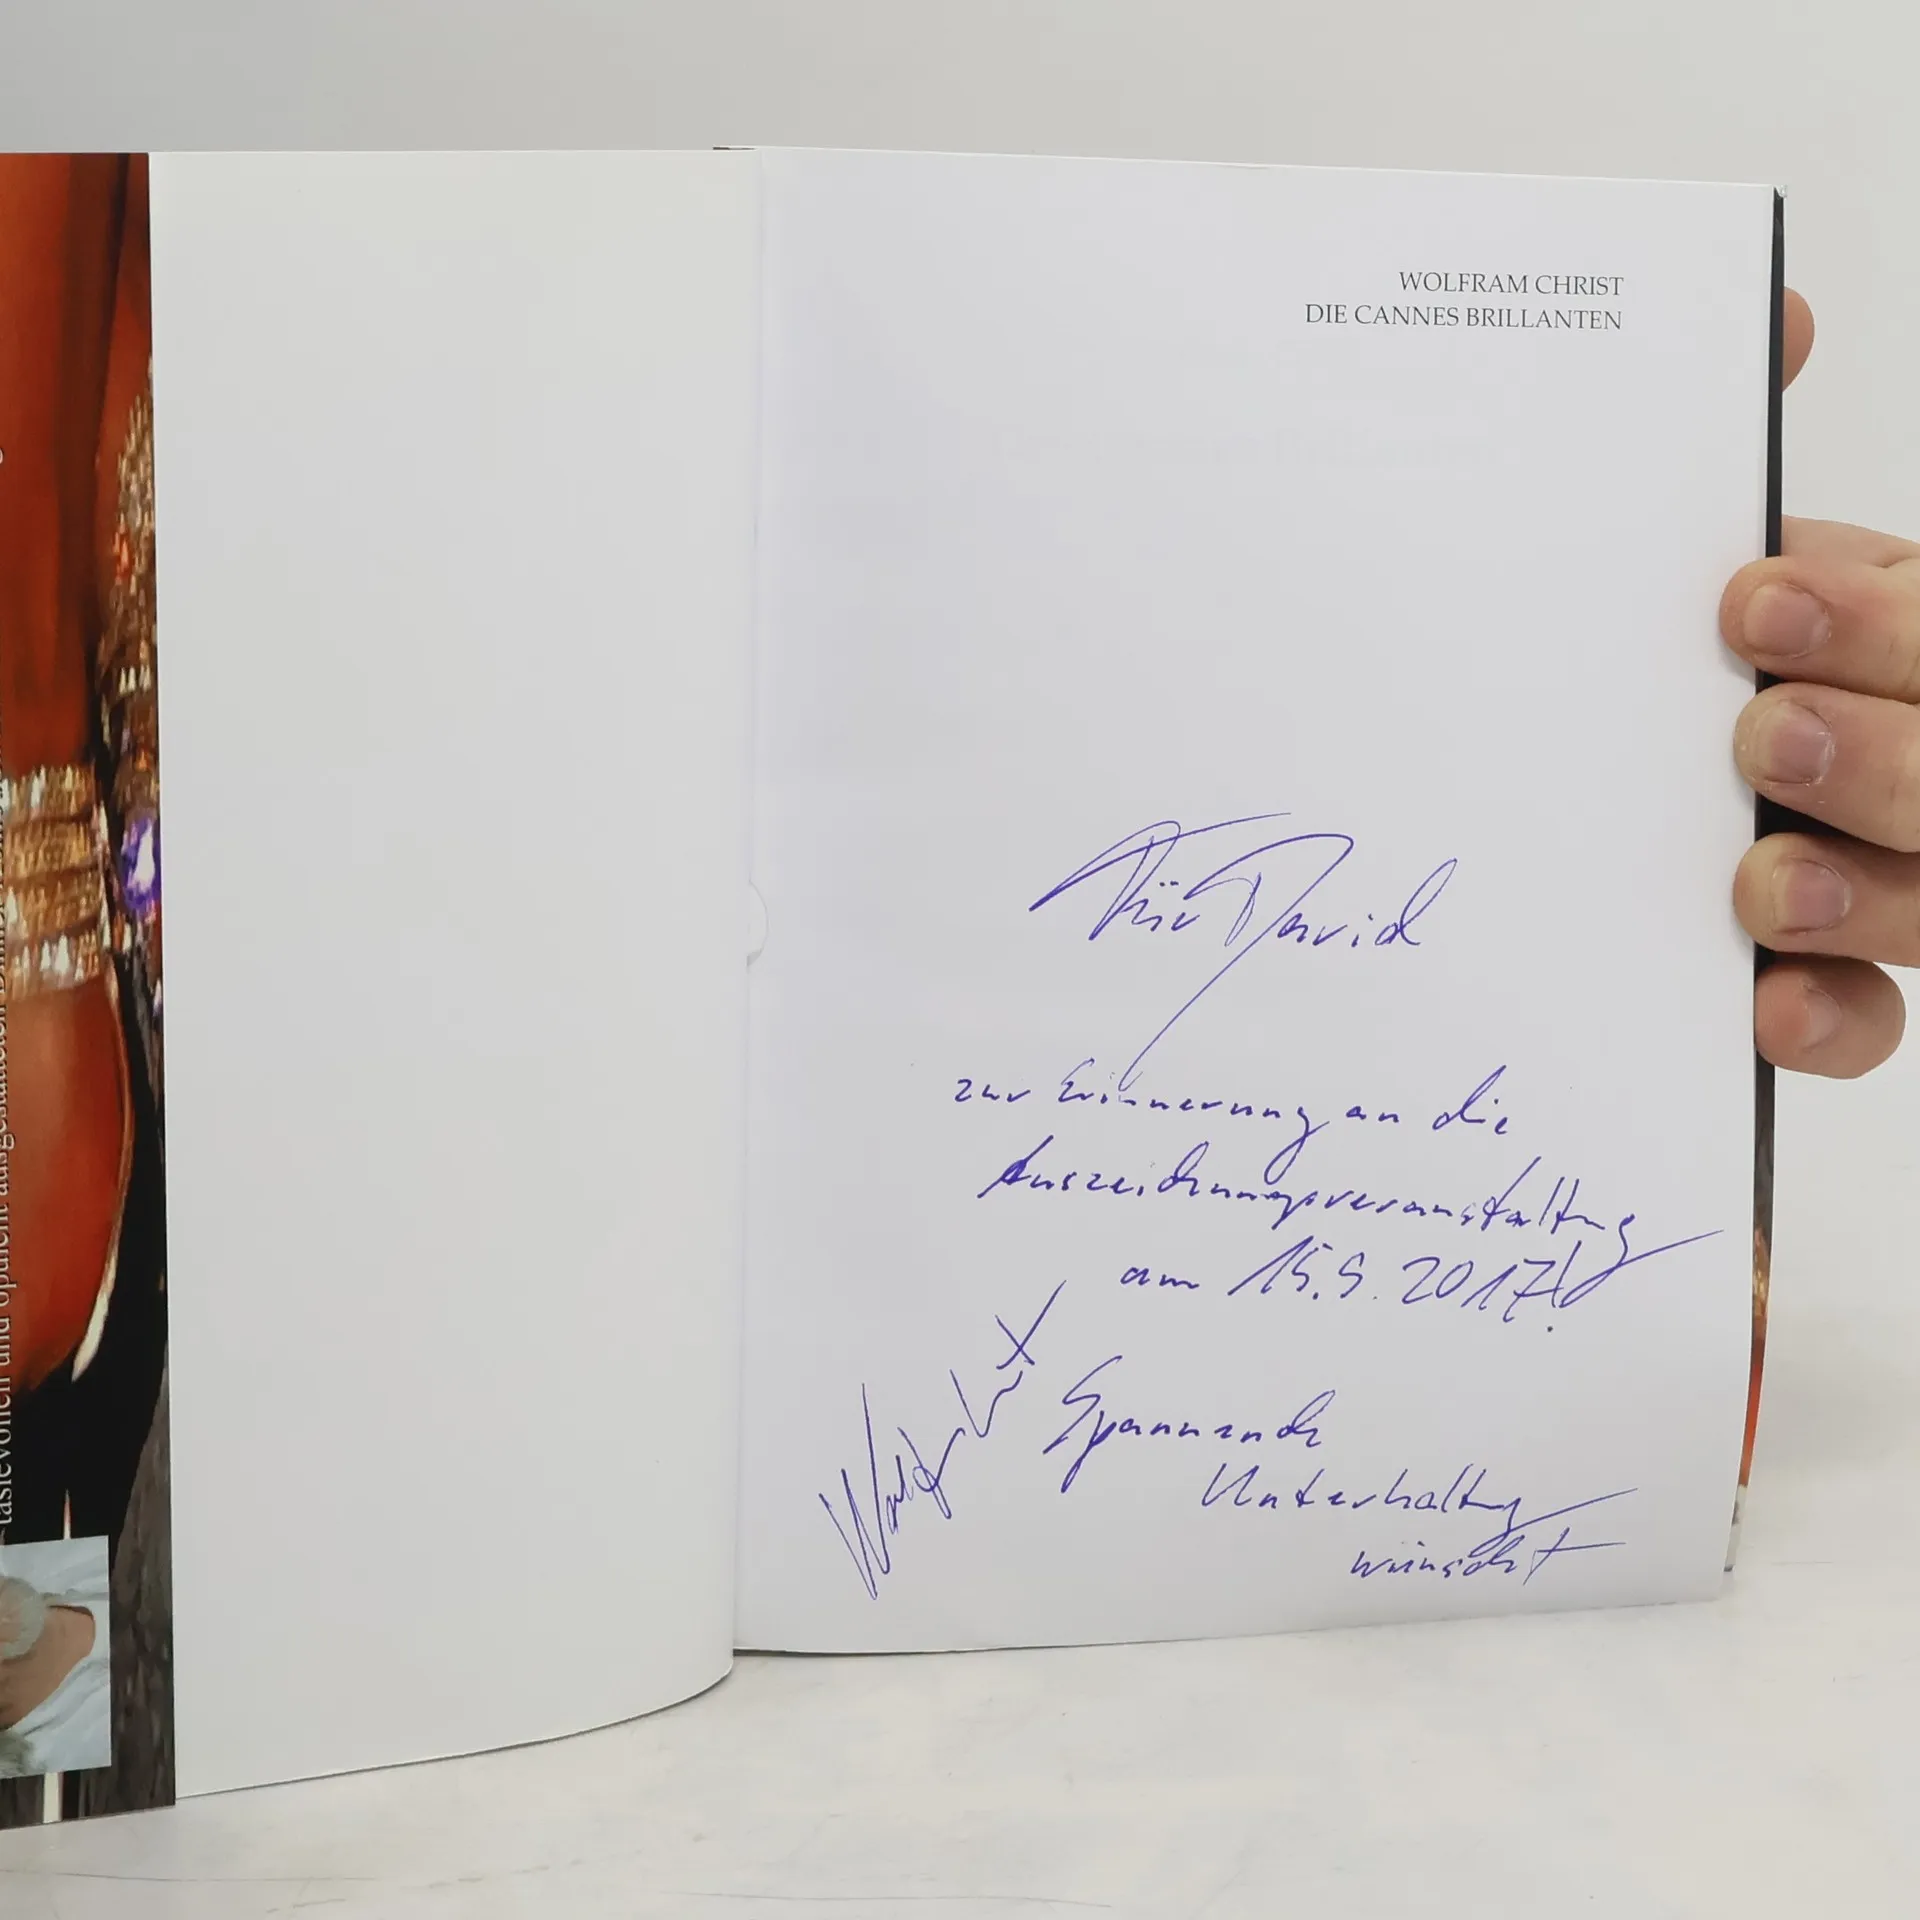 WOLFRAM CHRIST
DIE CANNES BRILLANTEN
Für David
zur Erinnerung an die
Auszeichnungsveranstaltung
am 15.9.2017!
Spannende
Unterhaltung
wünscht
tasievollen und opulent ausgestatteten